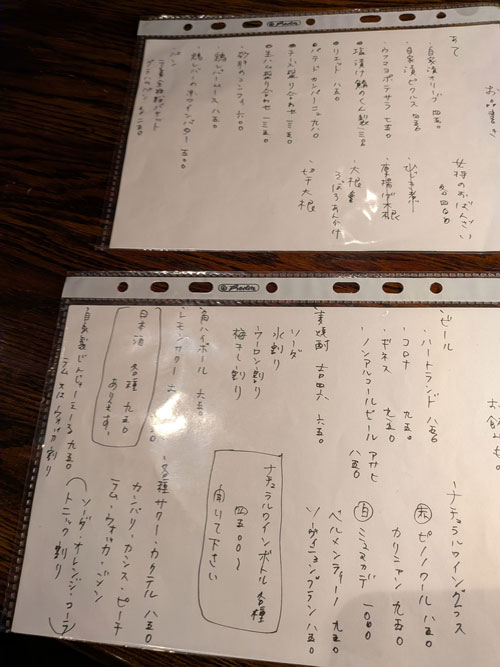 お品書き
あて
・自家漬オリーブ 四五〇
・自家漬ピクルス 四五〇
・ウフマヨポテサラ 七五〇
・塩漬け鯖のくん製 一三〇〇
・リエット 八五〇
・パテドカンパーニュ 九八〇
・チーズ盛り合わせ 一三五〇
・生ハム盛り合わせ 一三五〇
・砂肝のコンフィ 六〇〇
・鶏レバームース 八五〇
・鶏レバーホワイトバター 五〇〇
・パン
女将のおばんざい
各四四〇
・ひじき煮
・厚揚げ大根
・大根
そぼろあんかけ
・切干大根
Herlitz
お飲もの
・ビール
・ハートランド 八五〇
・コロナ 九五〇
・ギネス 九五〇
・ノンアルコールビール アサヒ 八五〇
・麦焼酎 吉四六 六五〇
ソーダ
水割り
ウーロン割り
梅干し割り
・角ハイボール 六五〇
・レモンサワー
日本酒 各種 九五〇
あります。
・自家製じんじゃーえーる 九五〇
ラム又はウォッカ割り
・ナチュラルワイングラス
赤 ピノノワール 八五〇
カリニャン 九五〇
白 ミュスカデ 一〇〇〇
ベルメンティーノ 九五〇
ソーヴィニヨンブラン 八五〇
ナチュラルワインボトル 各種
四五〇〇〜
聞いて下さい
・各種サワー・カクテル 八五〇
カンパリ・カシス・ピーチ
ラム・ウォッカ・ジン
(ソーダ・オレンジ・コーラ
トニック割り)